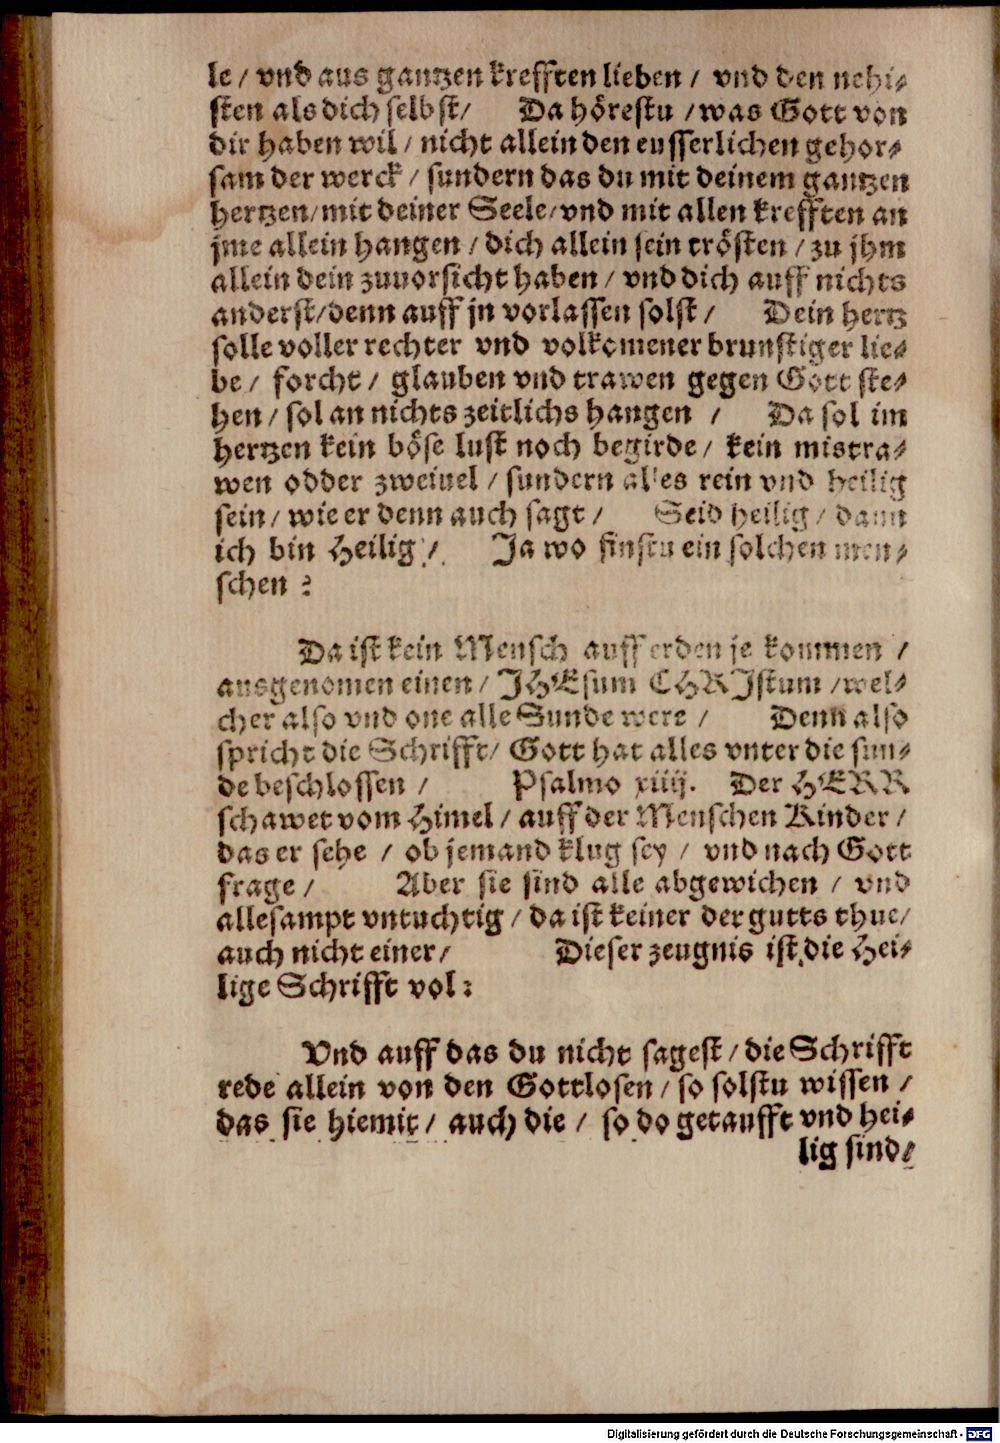 le / vnd aus gantzen krefften lieben / vnd den nehi⸗
sten als dich selbst / Da hörestu / was Gott von
dir haben wil / nicht allein den eusserlichen gehor⸗
sam der werck / sundern das du mit deinem gantzen
hertzen / mit deiner Seele / vnd mit allen krefften an
jme allein hangen / dich allein sein trösten / zu jhm
allein dein zuuorsicht haben / vnd dich auff nichts
anderst / denn auff jn vorlassen solst / Dein hertz
solle voller rechter vnd volkomener brunstiger lie⸗
be / forcht / glauben vnd trawen gegen Gott ste⸗
hen / sol an nichts zeitlichs hangen / Da sol im
hertzen kein böse lust noch begirde / kein mistra⸗
wen odder zweiuel / sundern alles rein vnd heilig
sein / wie er denn auch sagt / Seid heilig / dann
ich bin Heilig / Ja wo finstu ein solchen men⸗
schen ?
Da ist kein Mensch auff erden je kommen /
ausgenomen einen / JHEsum CHRJstum / wel⸗
cher also vnd one alle Sunde were / Denn also
spricht die Schrifft / Gott hat alles vnter die sun⸗
de beschlossen / Psalmo xiiij. Der HERR
schawet vom Himel / auff der Menschen Kinder /
das er sehe / ob jemand klug sey / vnd nach Gott
frage / Aber sie sind alle abgewichen / vnd
allesampt vntuchtig / da ist keiner der gutts thue /
auch nicht einer / Dieser zeugnis ist die Hei⸗
lige Schrifft vol :
Vnd auff das du nicht sagest / die Schrifft
rede allein von den Gottlosen / so solstu wissen /
das sie hiemit / auch die / so do getaufft vnd hei⸗
lig sind /
Digitalisierung gefördert durch die Deutsche Forschungsgemeinschaft - DFG